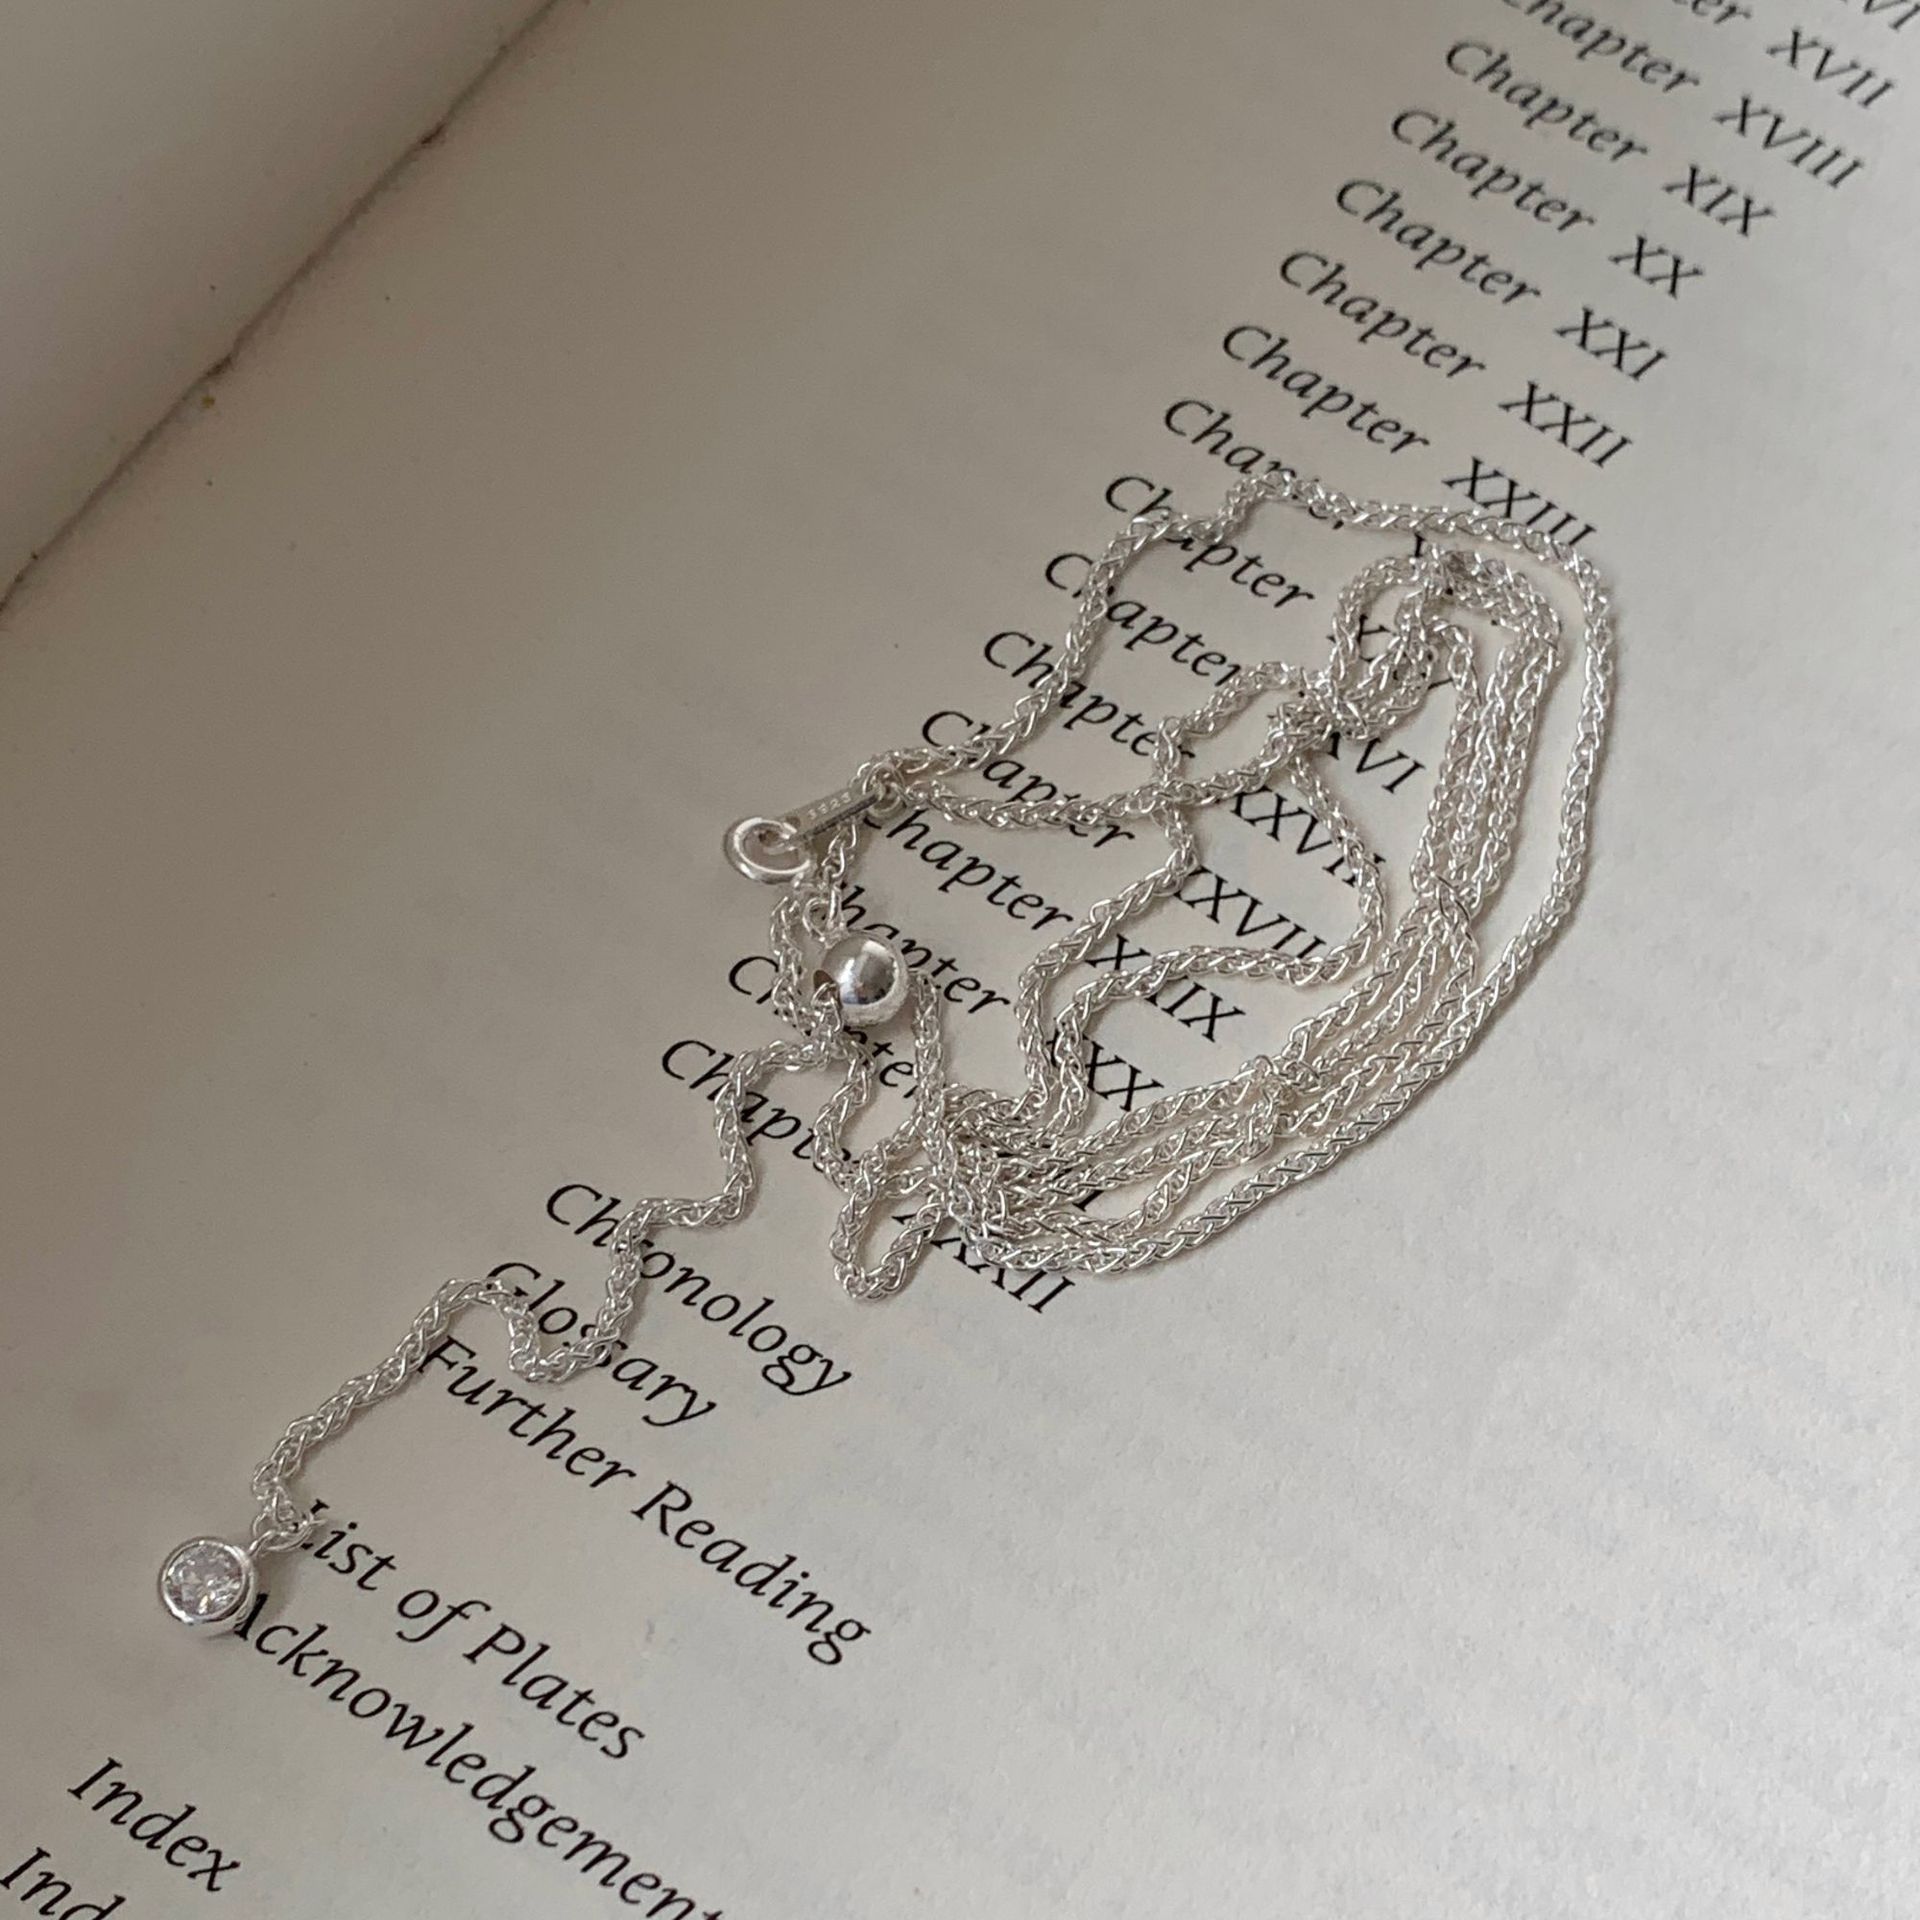 XVII
Chapter XVIII
Chapter XIX
Chapter XX
Chapter XXI
Chapter XXII
Chapter XXIII
Chapter
Chapter
Chapter XXVI
Chapter XXVII
Chapter XXVIII
Chapter XXIX
Chapter XXX
Chapter
Chapter XXXII
Chronology
Glossary
Further Reading
List of Plates
Acknowledgement
Index
Ind